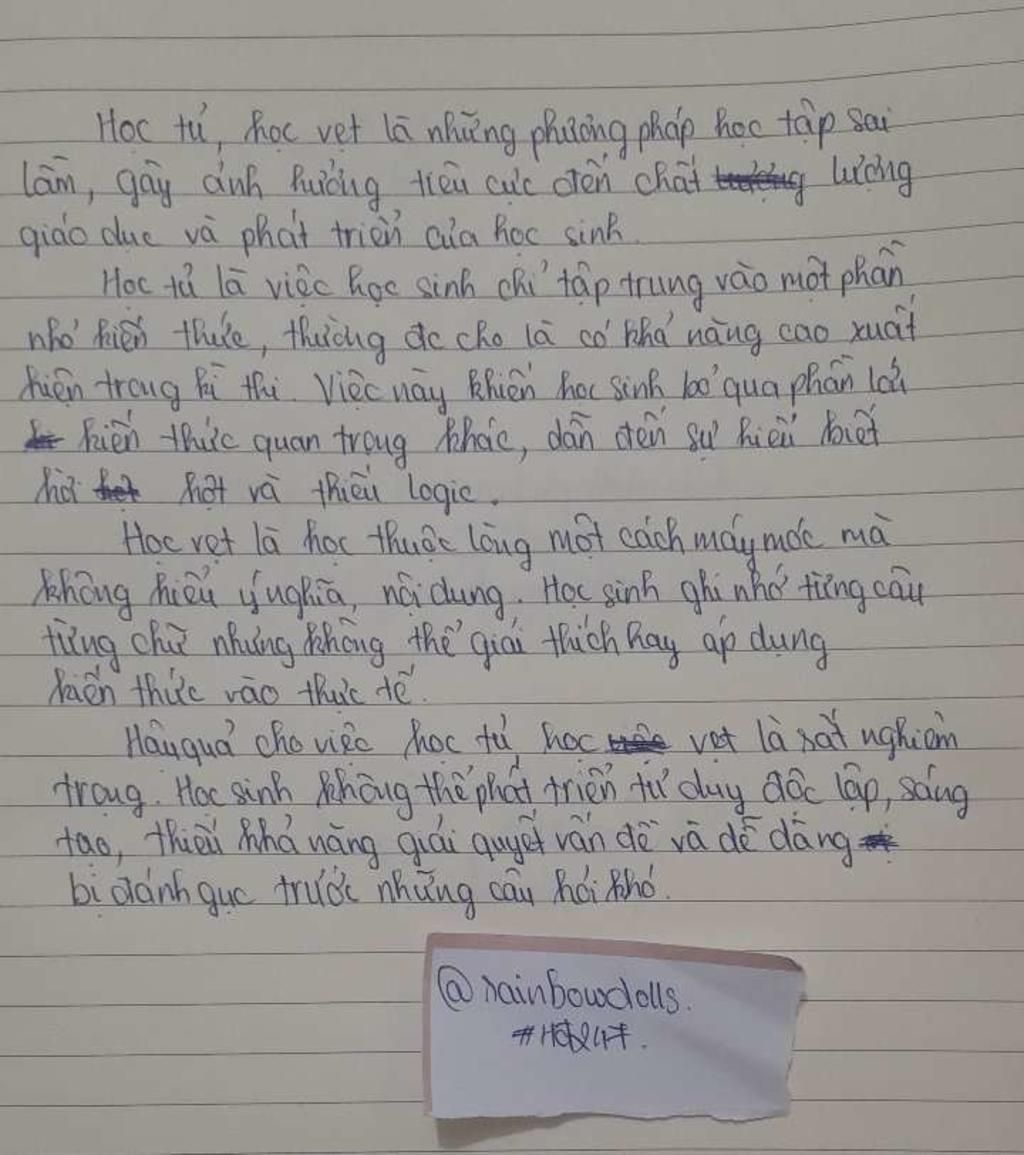 Học tủ, học vẹt là những phương pháp học tập sai
lầm, gây ảnh hưởng tiêu cực đến chất lượng
giáo dục và phát triển của học sinh.
Học tủ là việc học sinh chỉ tập trung vào một phần
nhỏ kiến thức, thường đc cho là có khả năng cao xuất
hiện trong kì thi. Việc này khiến học sinh bỏ qua phần lớn
kiến thức quan trọng khác, dẫn đến sự hiểu biết
hời hợt và thiếu logic.
Học vẹt là học thuộc lòng một cách máy móc mà
không hiểu ý nghĩa, nội dung. Học sinh ghi nhớ từng câu
từng chữ nhưng không thể giải thích hay áp dụng
kiến thức vào thực tế.
Hậu quả cho việc học tủ học vẹt là rất nghiêm
trọng. Học sinh không thể phát triển tư duy độc lập, sáng
tạo, thiếu khả năng giải quyết vấn đề và dễ dàng
bị đánh gục trước những câu hỏi khó.
@rainbowdolls.